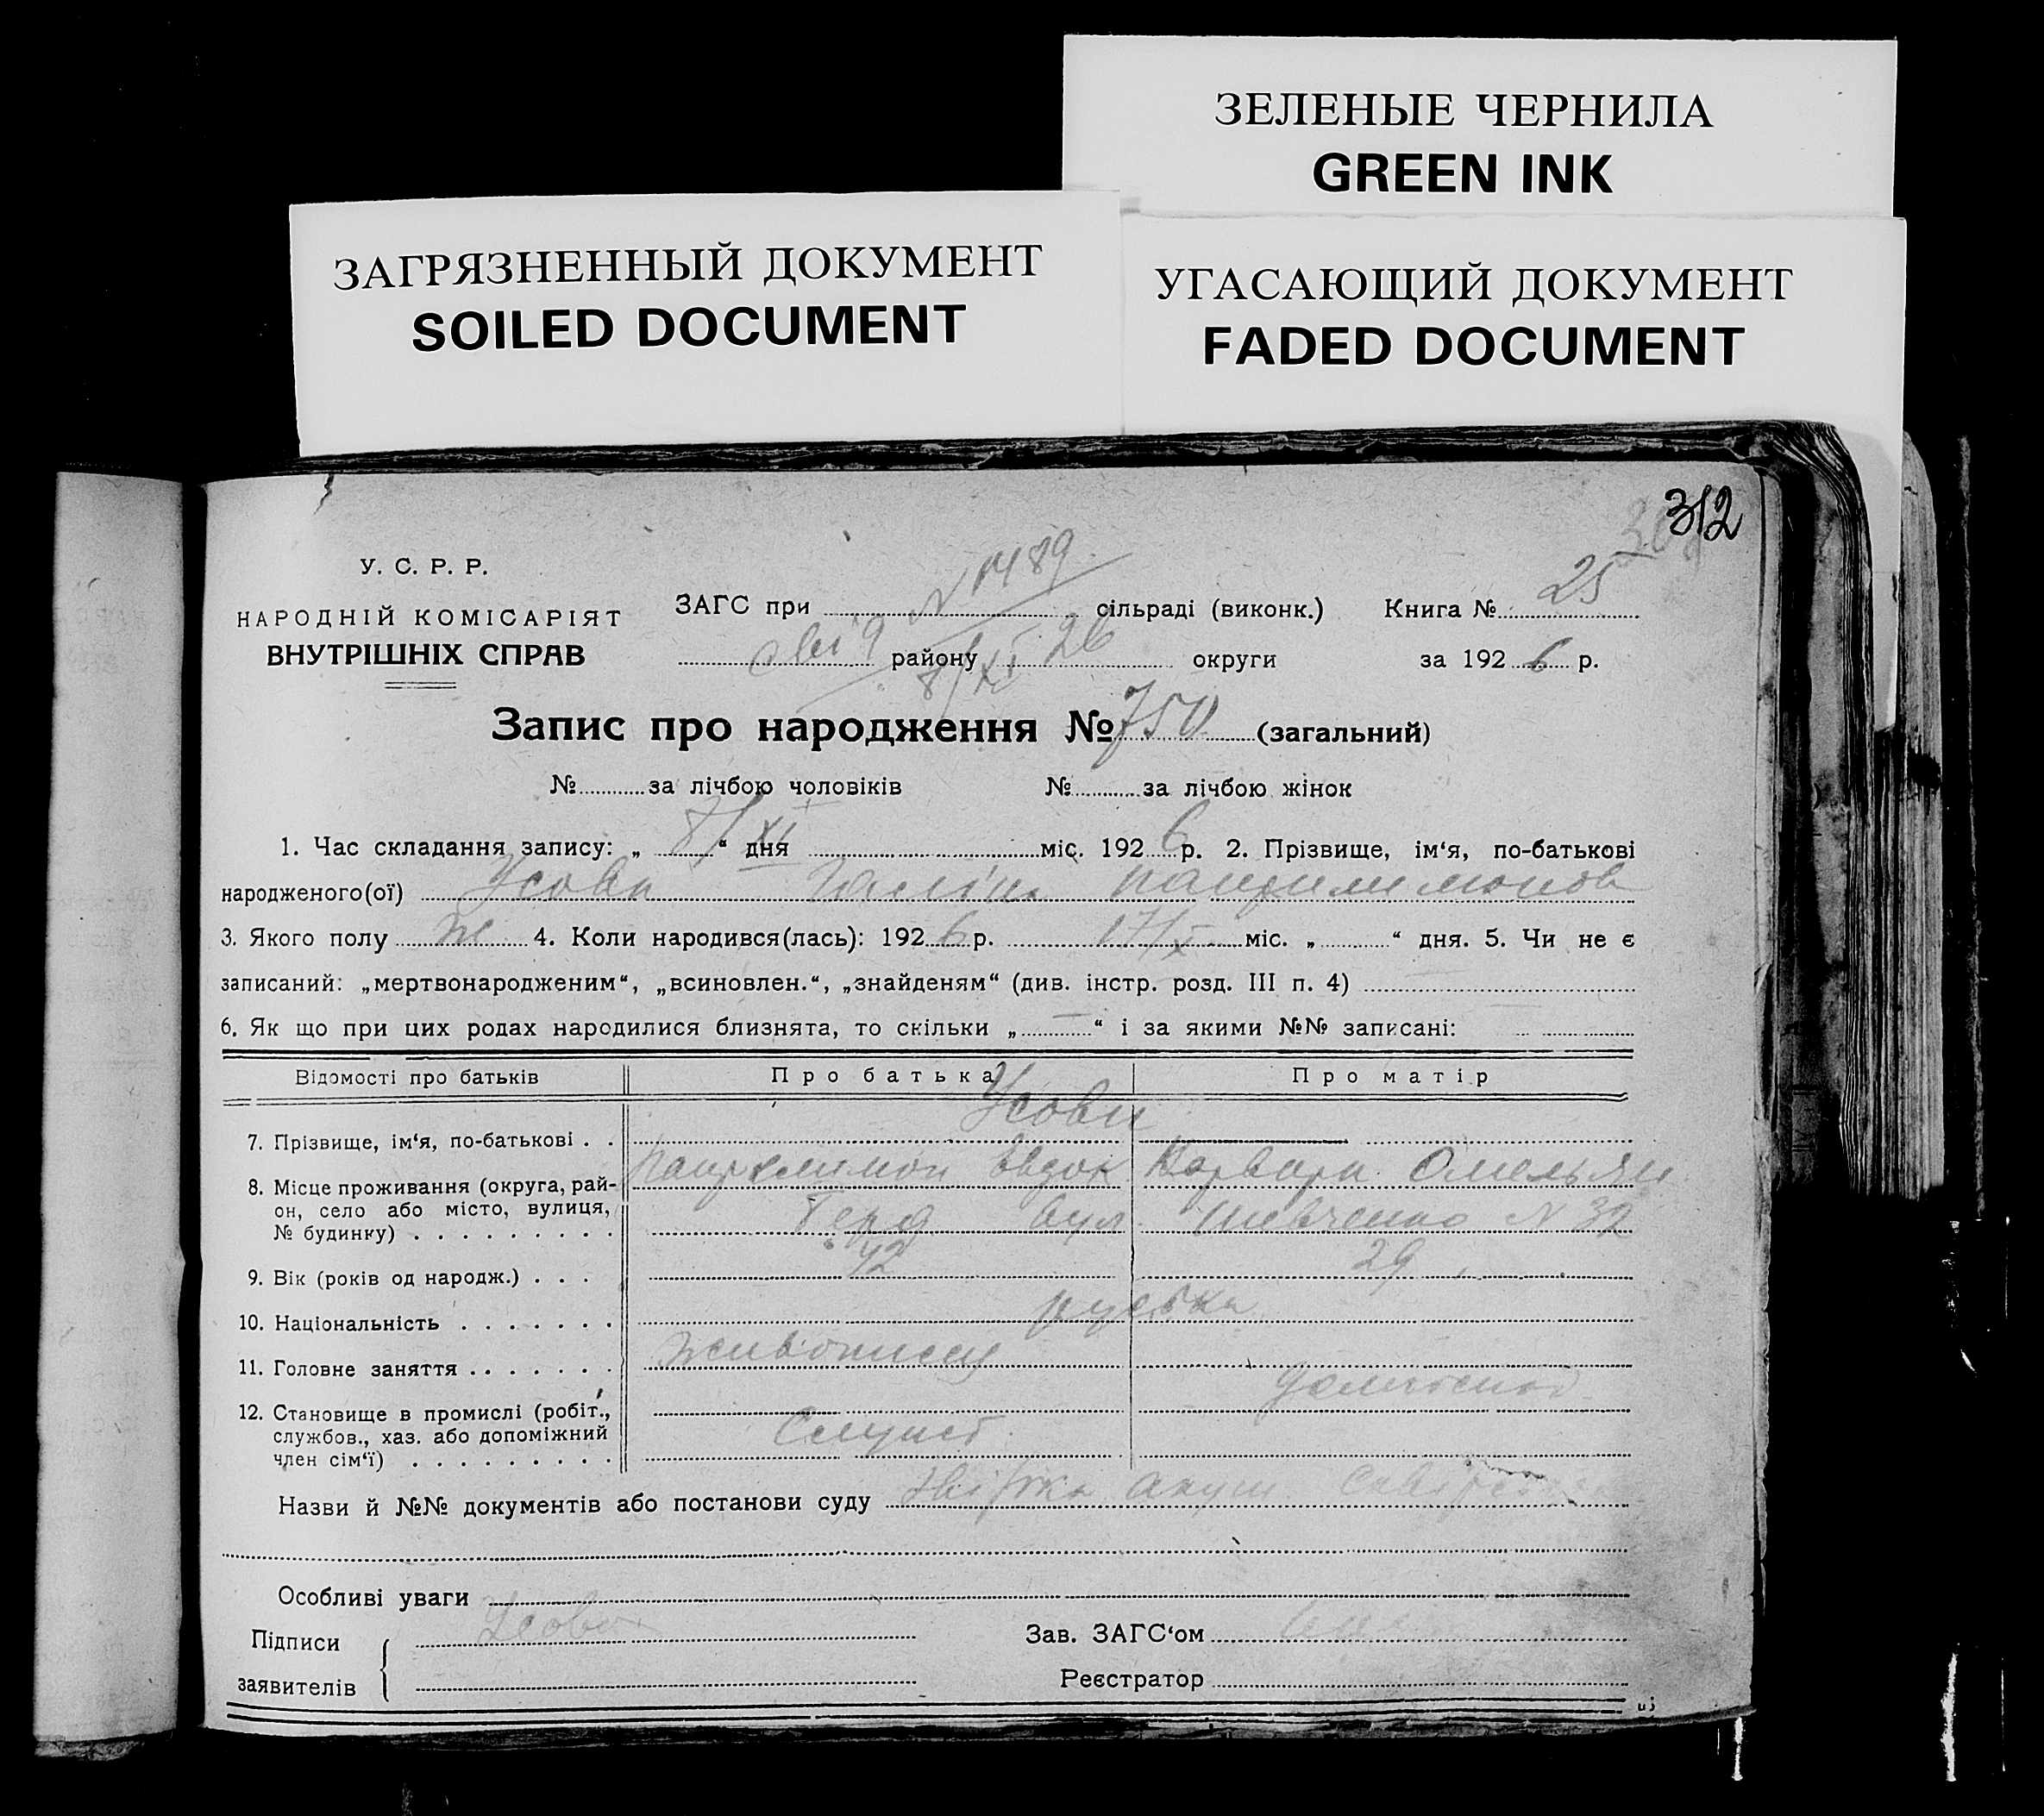 ЗЕЛЕНЫЕ ЧЕРНИЛА
GREEN INK
ЗАГРЯЗНЕННЫЙ ДОКУМЕНТ
SOILED DOCUMENT
УГАСАЮЩИЙ ДОКУМЕНТ
FADED DOCUMENT
312
У. С. Р. Р.
НАРОДНІЙ КОМІСАРІЯТ
ВНУТРІШНІХ СПРАВ
N 1489
ЗАГС при сільраді (виконк.) Книга № 25
району округи за 1926 р.
8/XI 26
Запис про народження № 750 (загальний)
№ за лічбою чоловіків № за лічбою жінок
1. Час складання запису: „ 8/XI “ дня міс. 1926 р. 2. Прізвище, ім‘я, по-батькові
народженого(ої) Усова Галіна
3. Якого полу ж 4. Коли народився(лась): 1926 р. 17/X міс. „ “ дня. 5. Чи не є
записаний: „мертвонародженим“, „всиновлен.“, „знайденям“ (див. інстр. розд. III п. 4)
6. Як що при цих родах народилися близнята, то скільки „ — “ і за якими №№ записані:
Відомості про батьків Про батька Про матір
7. Прізвище, ім‘я, по-батькові . . Усови
Евдок Варвара Омельян
8. Місце проживання (округа, рай-
он, село або місто, вулиця,
№ будинку) . . . . . . . . . вул. Шевченко N 32
9. Вік (років од народж.) . . . 42 29
10. Національність . . . . . . . руська
11. Головне заняття . . . . . . .
12. Становище в промислі (робіт.,
службов., хаз. або допоміжний
член сім‘ї) . . . . . . . . .
Назви й №№ документів або постанови суду акуш
Особливі уваги
Підписи Усова Зав. ЗАГС‘ом
заявителів Реєстратор